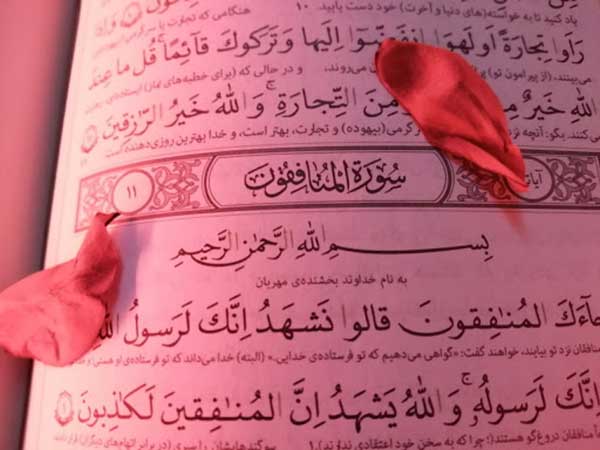 یاد کنید تا به خواسته(های دنیا و آخرت) خود دست یابید. ۱۰ هنگامی که تجارت یا سرگرمی
رَأَوْا تِجَارَةً أَوْ لَهْوًا انْفَضُّوا إِلَيْهَا وَتَرَكُوكَ قَآئِمًا ۚ قُلْ مَا عِنْدَ
می‌بینند، (از پیرامون تو) می‌روند. و در حالی که (برای خطبه‌های نماز) ایستاده‌ای،
اللّٰهِ خَيْرٌ مِنَ التِّجَارَةِ ۚ وَاللّٰهُ خَيْرُ الرّٰزِقِينَ
می‌کنند. بگو: آنچه نزد گرمی(بیهوده) و تجارت، بهتر است، و خدا بهترین روزی‌دهنده است
سُورَةُ الْمُنَافِقُونَ
۱۱
بِسْمِ اللّٰهِ الرَّحْمٰنِ الرَّحِيمِ
به نام خداوند بخشنده‌ی مهربان
جَآءَكَ الْمُنٰفِقُونَ قَالُوا نَشْهَدُ إِنَّكَ لَرَسُولُ اللّٰهِ
منافقان نزد تو بیایند، خواهند گفت: «گواهی می‌دهیم که تو فرستاده‌ی خدایی.» (البته) خدا می‌داند که تو فرستاده‌ی او هستی
إِنَّكَ لَرَسُولُهُ ۚ وَاللّٰهُ يَشْهَدُ إِنَّ الْمُنٰفِقِينَ لَكٰذِبُونَ ۱
منافقان دروغ‌گو هستند(؛ چرا که به سخن خود اعتقادی ندارند). ۱ سوگندهایشان را سپری (در برابر اتهام‌های دیگران) قرار دادند